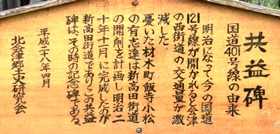 共益碑
国道401号線の由来
明治になって今の国道
121号線が開かれると会津
の西街道の交通量が激
減した
憂いた材木町飯寺小松
の有志達は新高田街道
の開削を計画し明治二
十年十一月に完成したのが
新高田街道でありこの共益
碑は、その時の記念碑である
平成二八年四月
北会津郷土史研究会